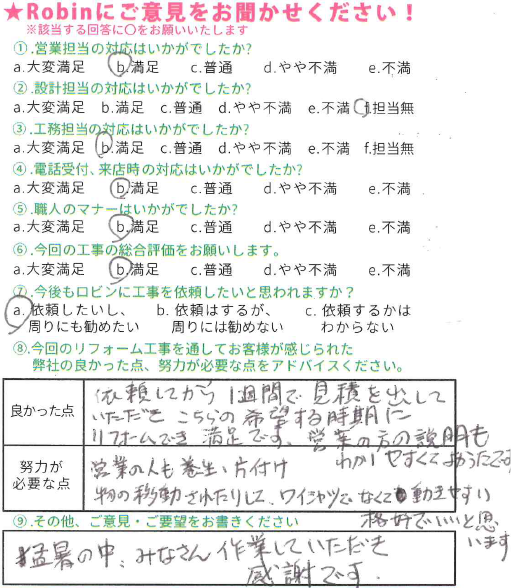 ★Robinにご意見をお聞かせください！
※該当する回答に〇をお願いいたします
①.営業担当の対応はいかがでしたか?
a.大変満足 b.満足 c.普通 d.やや不満 e.不満
②.設計担当の対応はいかがでしたか?
a.大変満足 b.満足 c.普通 d.やや不満 e.不満 f.担当無
③.工務担当の対応はいかがでしたか?
a.大変満足 b.満足 c.普通 d.やや不満 e.不満 f.担当無
④.電話受付、来店時の対応はいかがでしたか?
a.大変満足 b.満足 c.普通 d.やや不満 e.不満
⑤.職人のマナーはいかがでしたか?
a.大変満足 b.満足 c.普通 d.やや不満 e.不満
⑥.今回の工事の総合評価をお願いします。
a.大変満足 b.満足 c.普通 d.やや不満 e.不満
⑦.今後もロビンに工事を依頼したいと思われますか？
a.依頼したいし、 b.依頼はするが、 c.依頼するかは
周りにも勧めたい 周りには勧めない わからない
⑧.今回のリフォーム工事を通してお客様が感じられた
弊社の良かった点、努力が必要な点をアドバイスください。
良かった点
依頼してから1週間で見積を出して
いただき こちらの希望する時期に
リフォームでき 満足です、営業の方の説明も
わかりやすくてよかったです
努力が
必要な点
営業の人も養生い片付け
物の移動されたりして、ワイシャツでなくて動きやすい
格好でいいと思
います
⑨.その他、ご意見・ご要望をお書きください
猛暑の中、みなさん作業していただき
感謝です.